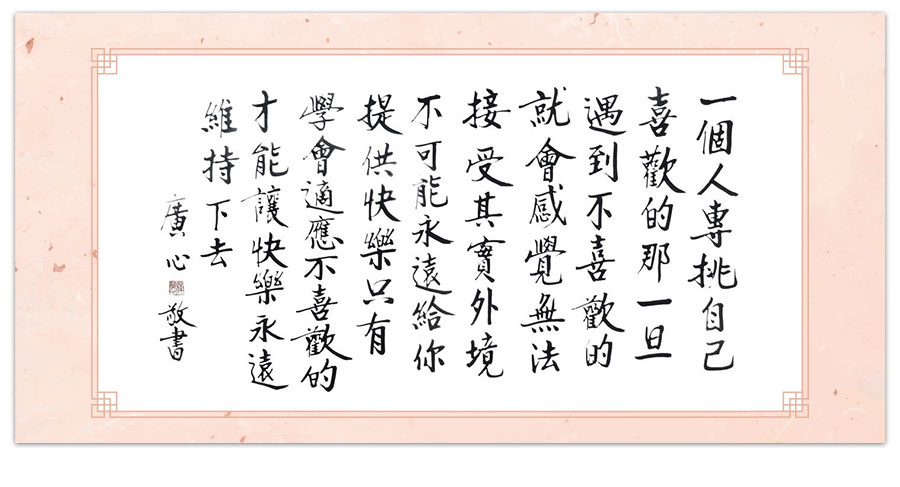 一個人專挑自己
喜歡的那一旦
遇到不喜歡的
就會感覺無法
接受其實外境
不可能永遠給你
提供快樂只有
學會適應不喜歡的
才能讓快樂永遠
維持下去
廣心 敬書